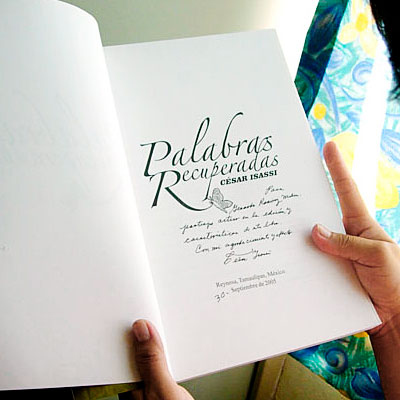 Palabras
Recuperadas
CÉSAR ISASSI
Para
Gerardo
activo en la edición y
características de este libro
Con mi agradecimiento y afecto
César Isassi
Reynosa, Tamaulipas, México
30- Septiembre de 2005